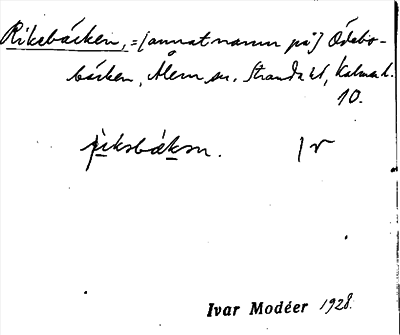 Riksbäcken, = [annat namn på] Ödebo-
bäcken, Ålem sn. Stranda hd, Kalmar l.
10.
riksbäksn. 1 r
Ivar Modéer 1928.